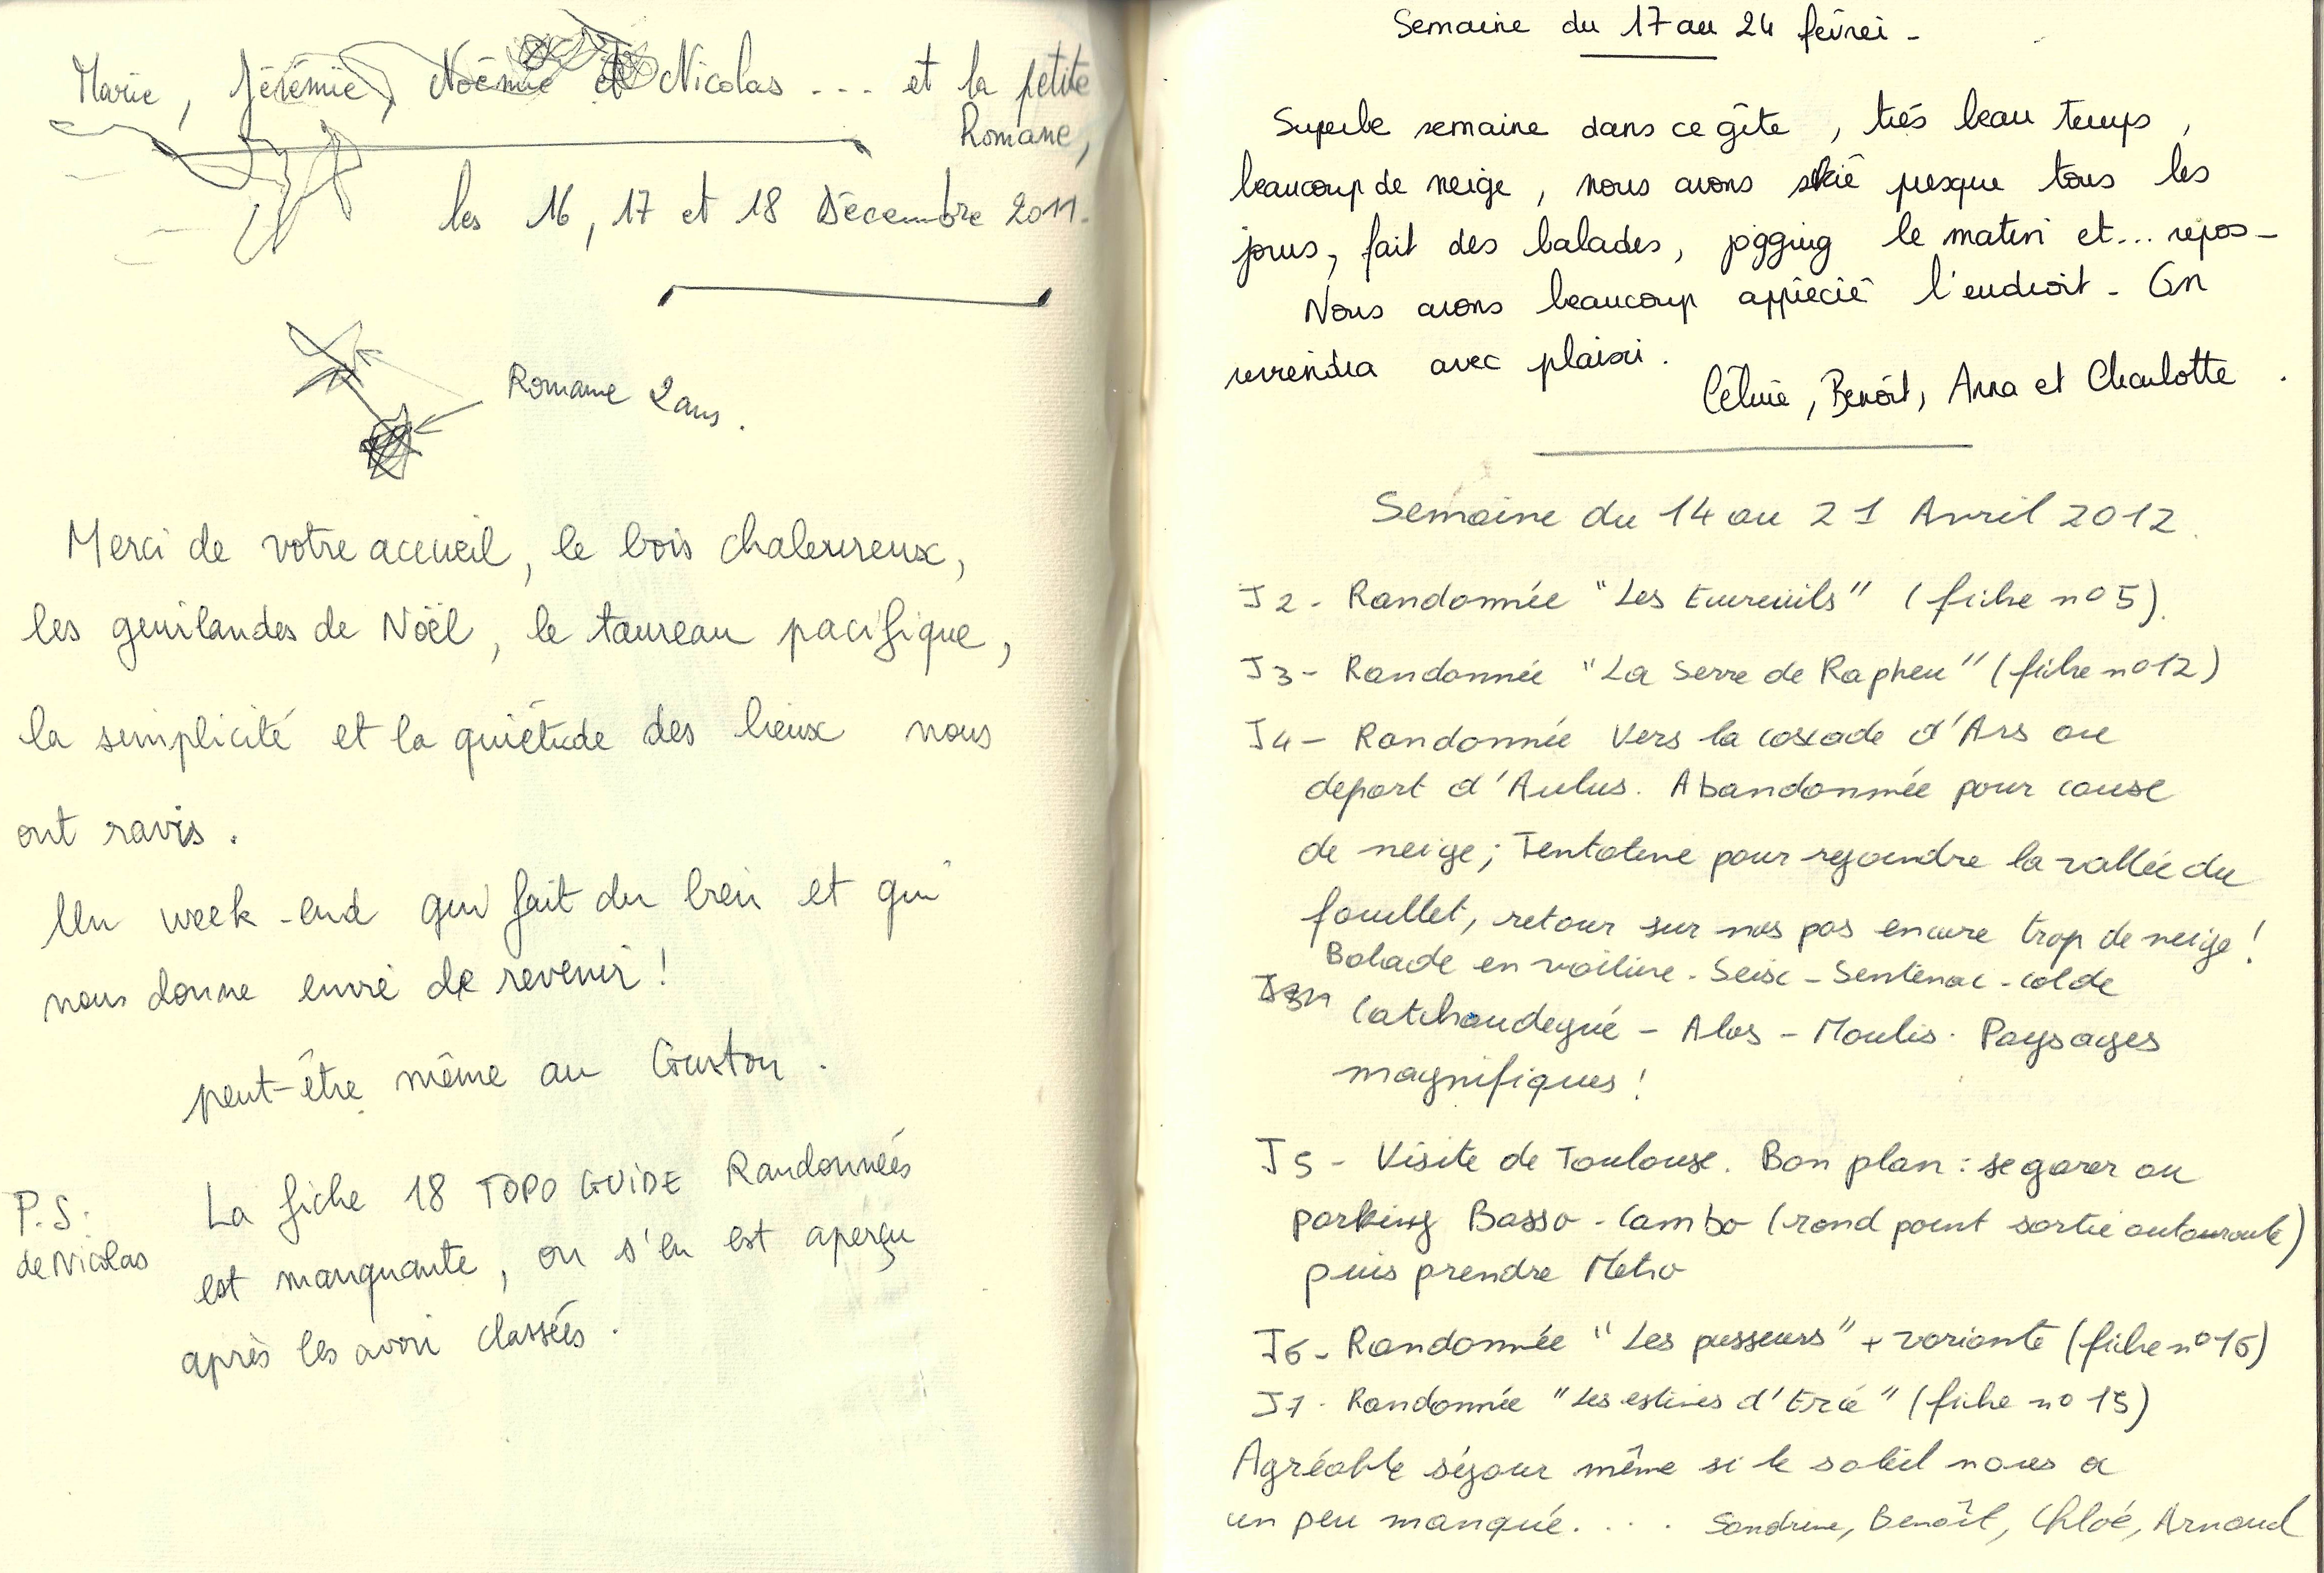 Marie, Jérémie, Noémie et Nicolas ... et la petite
Romane,
les 16, 17 et 18 Décembre 2011.
Romane 2 ans.
Merci de votre accueil, le bois chaleureux,
les guirlandes de Noël, le taureau pacifique,
la simplicité et la quiétude des lieux nous
ont ravis.
Un week-end qui fait du bien et qui
nous donne envie de revenir !
peut-être même au Guston.
P.S:
de Nicolas
La fiche 18 TOPO GUIDE Randonnées
est manquante, on s'en est aperçu
après les avoir classées.
Semaine du 17 au 24 février -
Superbe semaine dans ce gîte, très beau temps,
beaucoup de neige, nous avons skié presque tous les
jours, fait des balades, jogging le matin et... repos -
Nous avons beaucoup apprécié l'endroit - On
reviendra avec plaisir.
Céline, Benoît, Anna et Charlotte.
Semaine du 14 au 21 Avril 2012.
J2 - Randonnée "Les Ecureuils" (fiche n°5).
J3 - Randonnée "La Serre de Rapheu" (fiche n°12)
J4 - Randonnée Vers la cascade d'Ars au
départ d'Aulus. Abandonnée pour cause
de neige; Tentative pour rejoindre la vallée du
fouillet, retour sur nos pas encore trop de neige !
Balade en voiture - Seix - Sentenac - col de
Catchaudegué - Alos - Moulis. Paysages
magnifiques !
J5 - Visite de Toulouse. Bon plan : se garer au
parking Basso-Cambo (rond point sortie autouroute)
puis prendre Métro
J6 - Randonnée "Les passeurs" + variante (fiche n°16)
J7 - Randonnée "Les estives d'Ercé" (fiche n°15)
Agréable séjour même si le soleil nous a
un peu manqué.... Sandrine, Benoît, Chloé, Arnaud